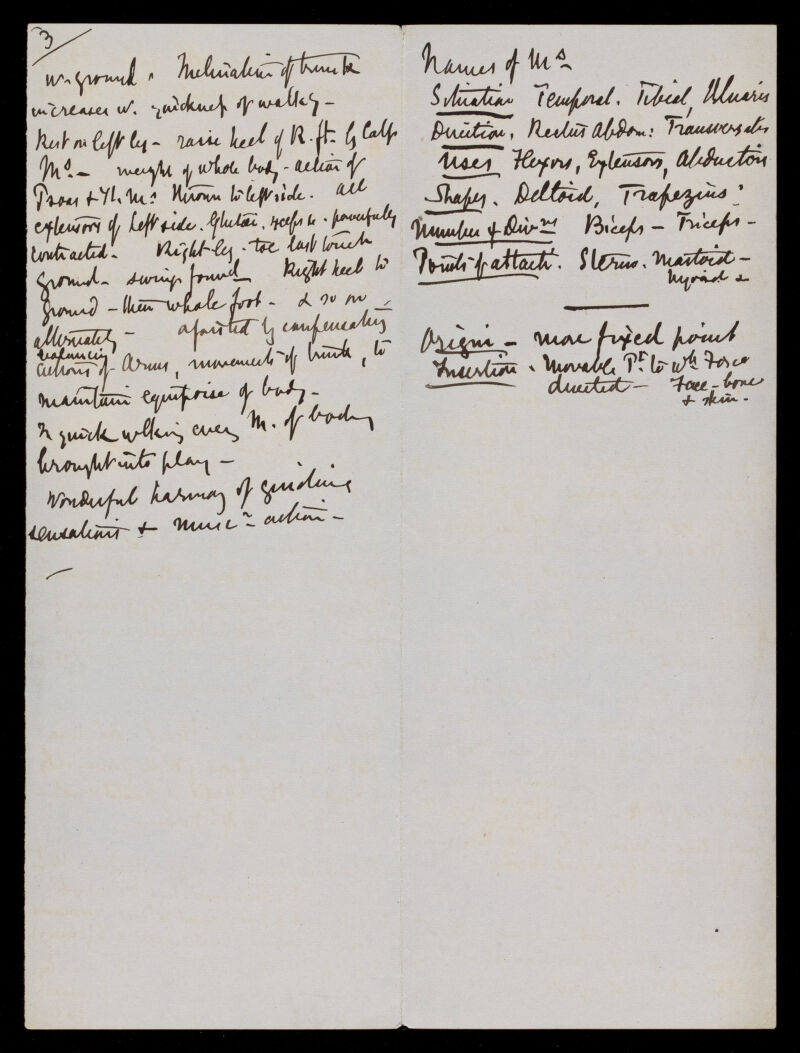 3
w. ground. Inclination of trunk
increases w. quickness of walkg -
Rest on left leg - raise heel of R. ft. by Calf
Ms - weight of whole body - action of
Psoas & Il. Ms thrown to left side. all
extensors of left side. Glutaei. powerfully
contracted - Right leg - toe last touch
ground - swings forwd Right heel to
ground - then whole foot - & so on
alternately - assisted by compensating
balancing
actions of Arms, movements of trunk, to
maintain equipoise of body -
In quick walking every M. of body
brought into play -
Wonderful harmony of guiding
sensations & musc.r action -
Names of Ms
Situation Temporal. Tibial, Ulnaris
Direction. Rectus Abdom: Transversalis
Uses Flexors, Extensors, Abductors
Shapes. Deltoid, Trapezius:
Number & Divns Biceps - Triceps -
Points of attach. Sterno. Mastoid -
hyoid
Origin - more fixed point
Insertion. Movable Pt. to wh Force
directed - Face - bone
& skin -